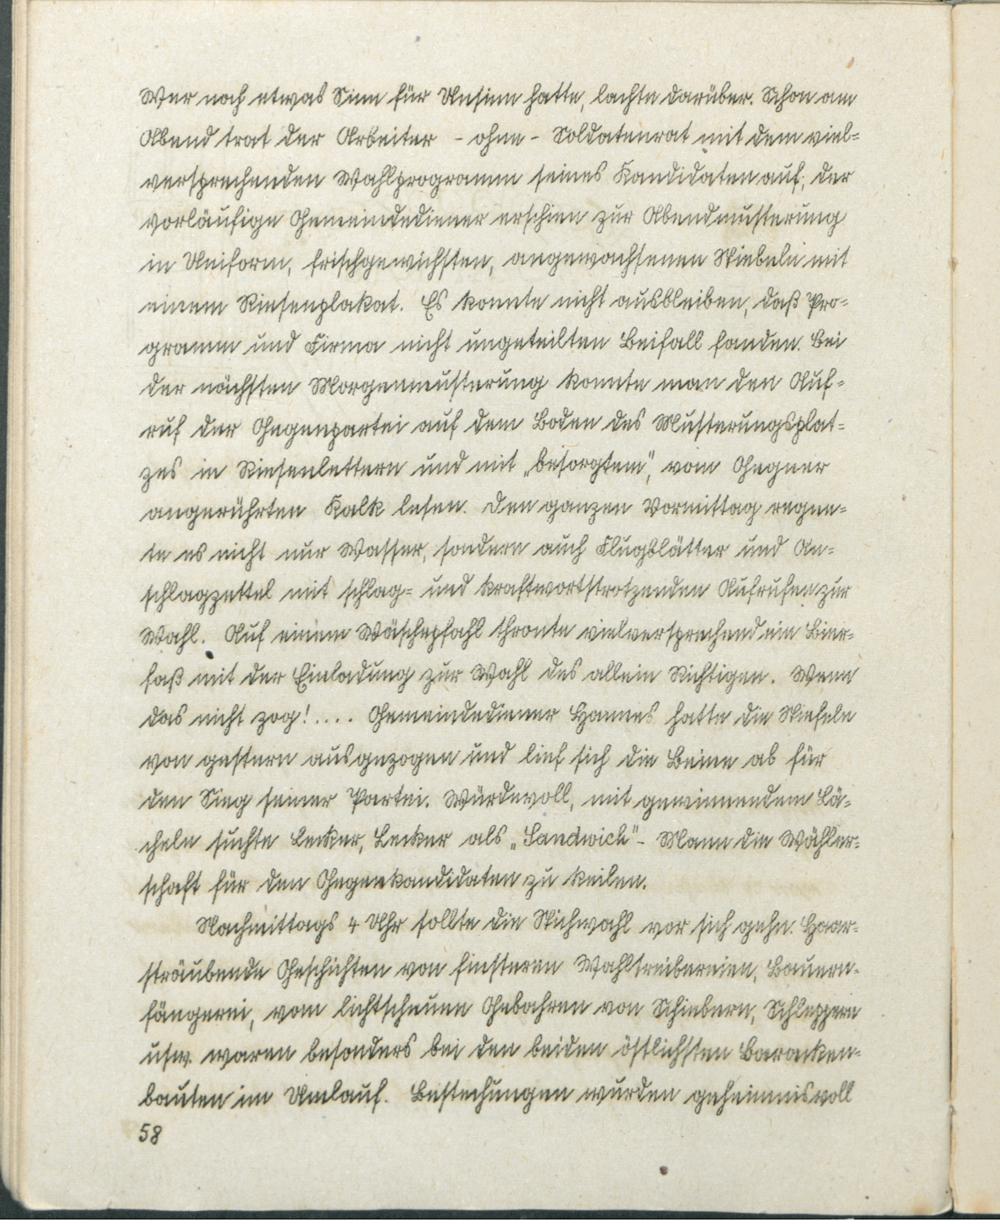 Wer noch etwas Sinn für Unsinn hatte, lachte darüber. Schon am
Abend trat der Arbeiter - ohne - Soldatenrat mit dem viel-
versprechenden Wahlprogramm seines Kandidaten auf; der
vorläufige Gemeindediener erschien zur Abendmusterung
in Uniform, frischgewichsten, angewachsenen Stiebeln mit
einem Riesenplakat. Es konnte nicht ausbleiben, daß Pro-
gramm und Firma nicht ungeteilten Beifall fanden. Bei
der nächsten Morgenmusterung konnte man den Auf-
ruf der Gegenpartei auf dem Boden des Musterungsplat-
zes in Riesenlettern und mit „besorgtem", vom Gegner
angerührten Kalk lesen. Den ganzen Vormittag regne-
te es nicht nur Wasser, sondern auch Flugblätter und An-
schlagzettel mit schlag- und kraftwortstrotzenden Aufrufen zur
Wahl. Auf einem Wäschepfahl thronte vielversprechend ein Bier-
faß mit der Einladung zur Wahl des allein Richtigen. Wenn
das nicht zog!.... Gemeindediener Hannes hatte die Stiefeln
von gestern ausgezogen und lief sich die Beine ab für
den Sieg seiner Partei. Würdevoll, mit gewinnendem Lä-
cheln suchte Lecker, Lecker als „Sandwich"- Mann die Wähler-
schaft für den Gegenkandidaten zu keilen.
Nachmittags 4 Uhr sollte die Stichwahl vor sich gehn. Haar-
sträubende Geschichten von finsteren Wahltreibereien, Bauern-
fängerei, vom lichtscheuen Gebahren von Schiebern, Schleppern
usw. waren besonders bei den beiden östlichsten Baracken-
bauten im Umlauf. Bestechungen wurden geheimnisvoll
58